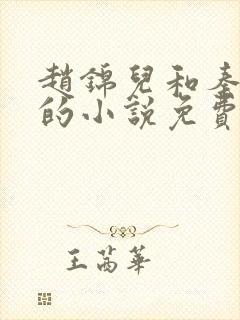 趙錦兒和秦
的小說免費
王茜華